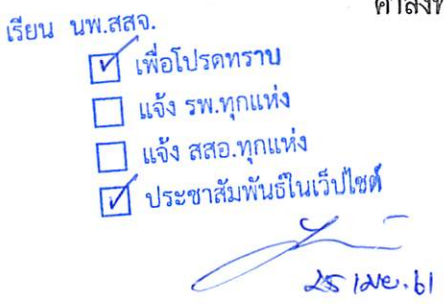 เรียน นพ.สสจ.
เพื่อโปรดทราบ
แจ้ง รพ.ทุกแห่ง
แจ้ง สสอ.ทุกแห่ง
ประชาสัมพันธ์ในเว็ปไซต์
25 เมย. 61